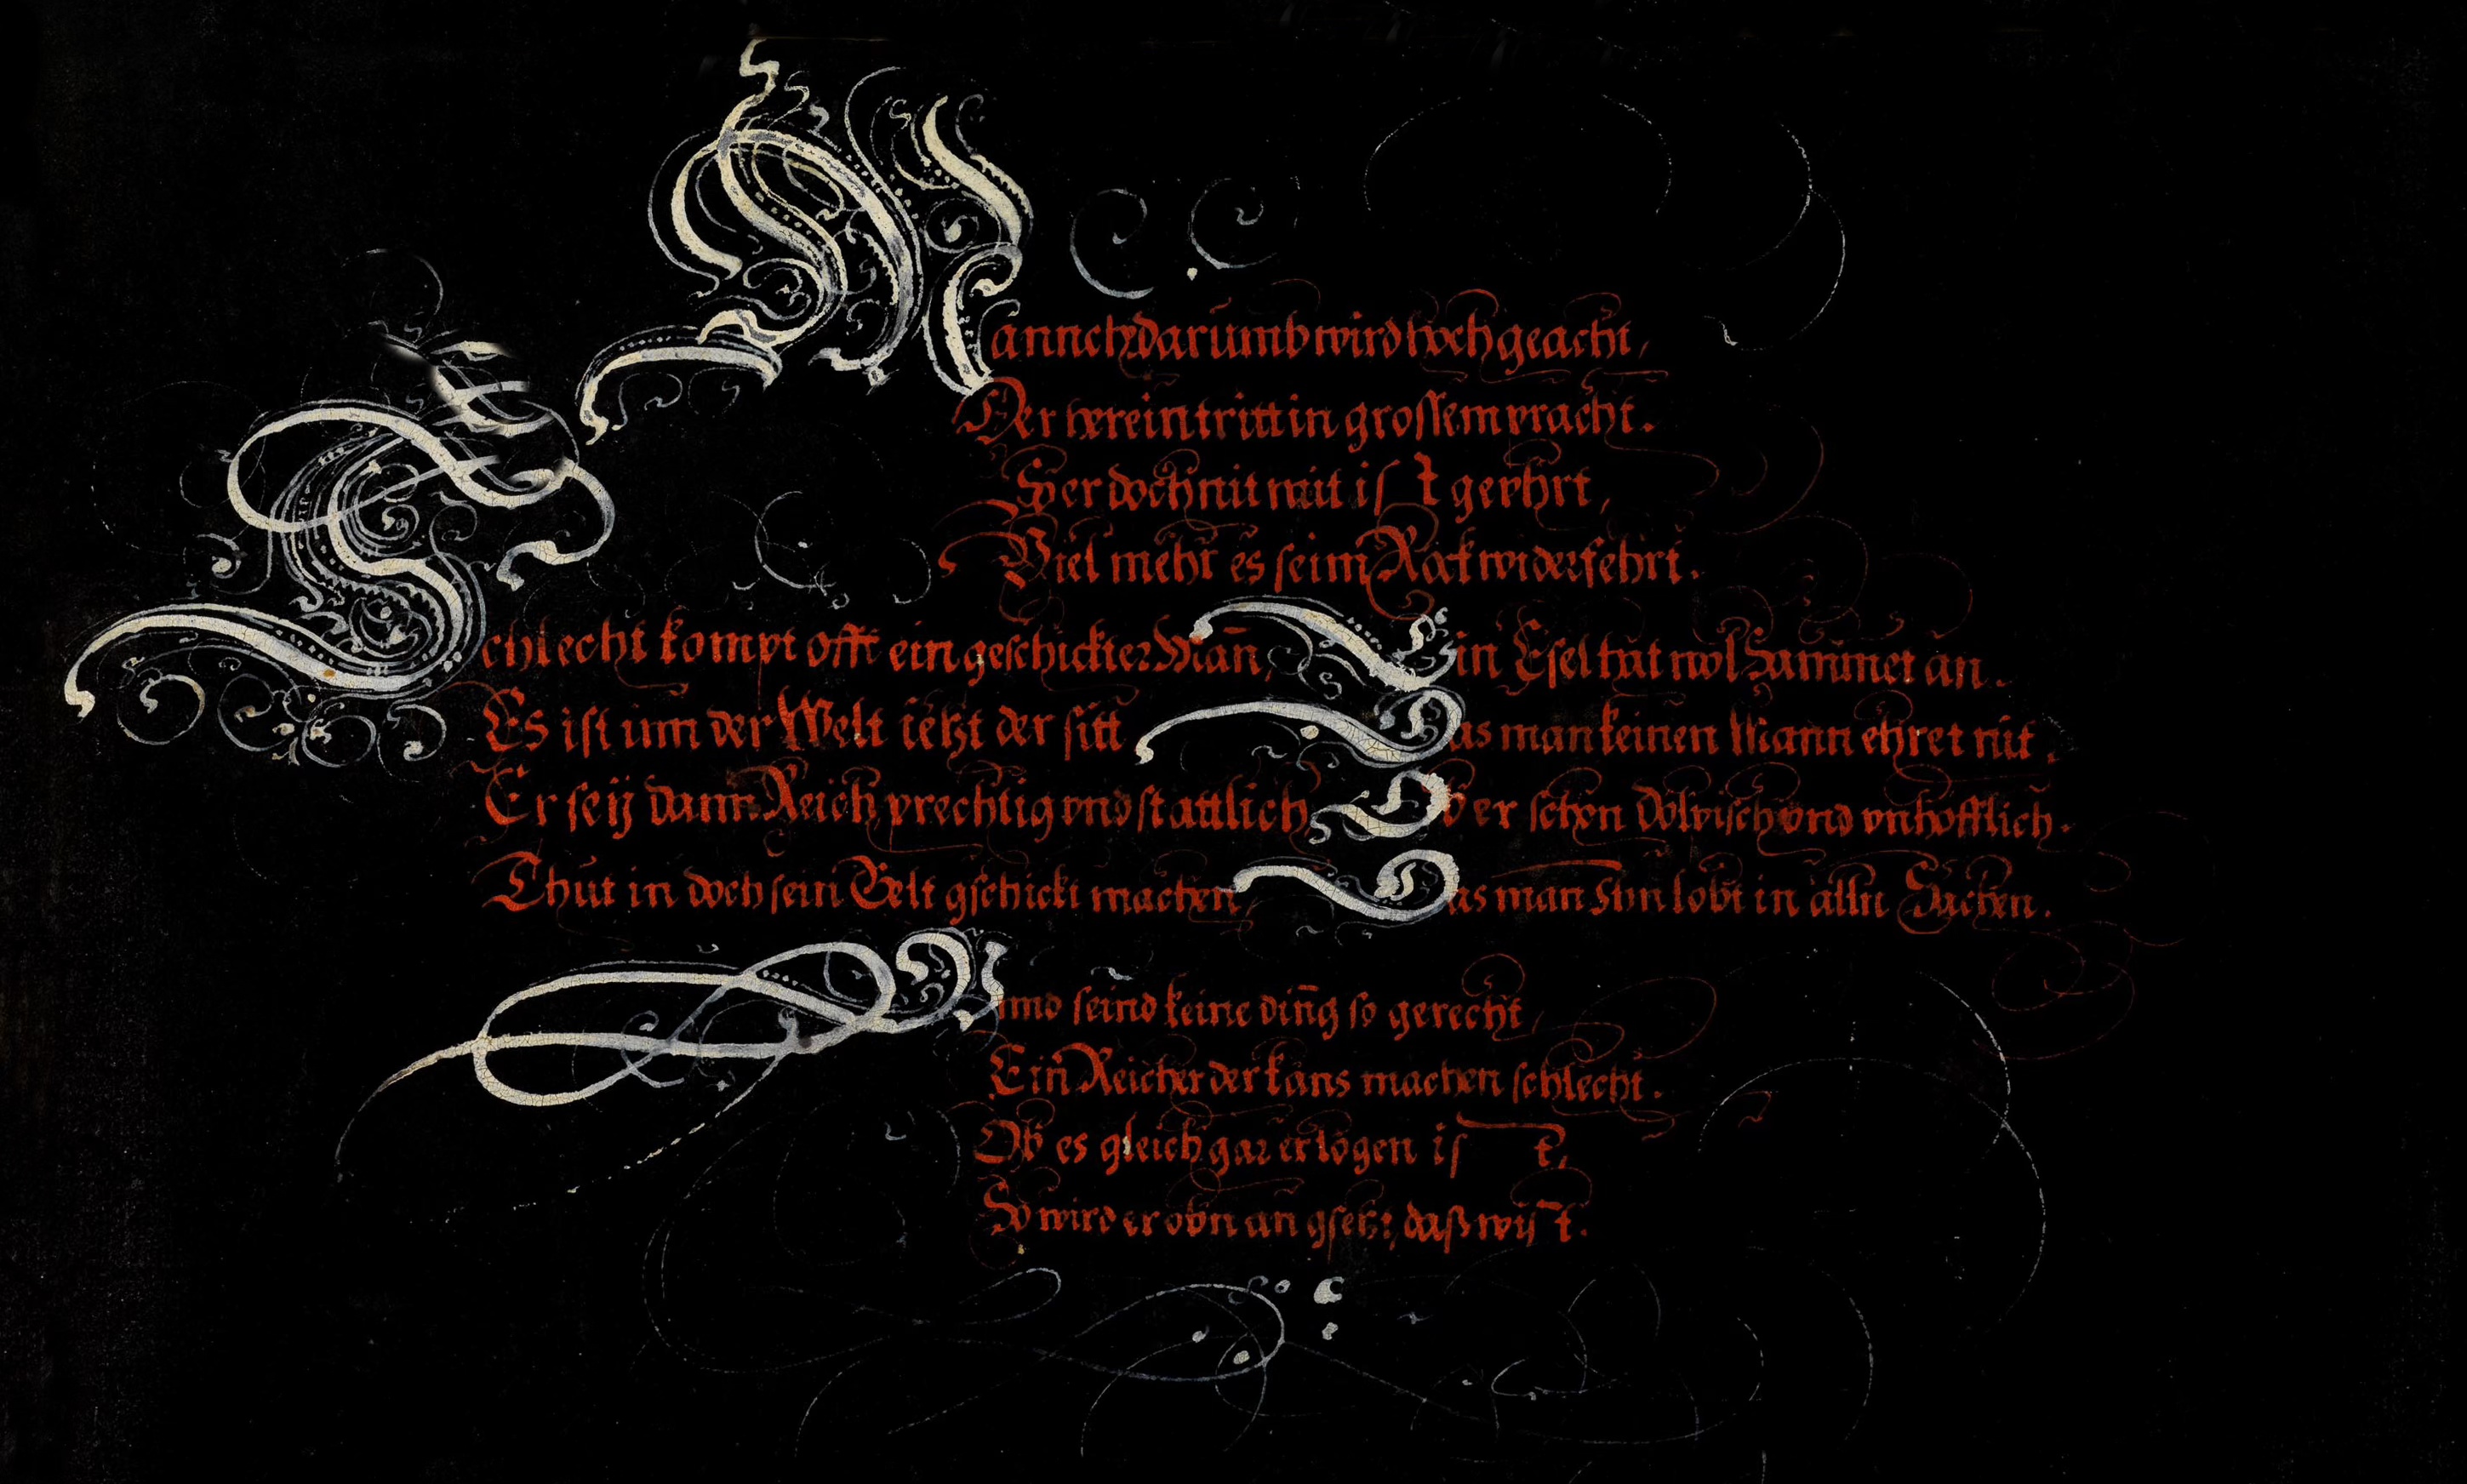 Mannch darumb wird hoch geacht,
Der herein tritt in grossem pracht.
So er doch nit mit ist gephrt,
Viel mehr es seim Rock widerfehrt.
Schlecht kompt offt ein geschickter Man, Ein Esel hat wol Sammet an.
Es ist inn der Welt ietzt der sitt Das man keinen Mann ehret nit.
Er seij dann Reich prechtig vnd stattlich, Ob er schon Dölpisch vnd vnhofflich.
Thut in doch sein Gelt gschickt machen, Das man Ihn lobt in alln Sachen.
Vnnd seind keine ding so gerecht,
Ein Reicher der kans machen schlecht.
Ob es gleich gar erlogen ist,
So wird er obn an gsetzt, daß wijst.